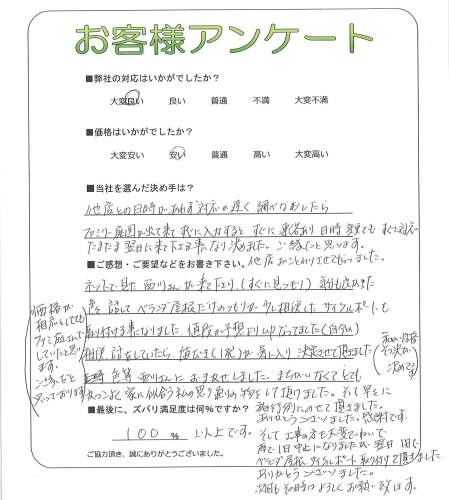 お客様アンケート
■弊社の対応はいかがでしたか?
大変良い 良い 普通 不満 大変不満
■価格はいかがでしたか?
大変安い 安い 普通 高い 大変高い
■当社を選んだ決め手は?
他店との日時があわず対応が遅く 調べなおしたら
ファミリー庭園が出て来て 入力すると すぐに 連絡あり 日時
たまたま翌日に来て下さる事になり決めました。ご縁だったと思います。
■ご感想・ご要望などをお書き下さい。 他店おことわりさせてもらいました。
ネットで見た 西川さんが来て下さり (すぐに見つもり)
色々話して ベランダ屋根だけのつもりが 相談した サイクルポートも
取り付ける事になりました 値段が予想より なってました(自分の)
相談 討をしていたら 気に入り 決定させて頂きました
色等 西川さんに おまかせしました。まちがいなくてとても
家に似合う私の思う通りの物をして頂けました。そして早々に
■最後に、ズバリ満足度は何%ですか? 施行例にのせて頂きました。
ありがとうございました。感謝です。
100 % 以上です。
そして 工事の方も大変
雨で1日中止になりましたが 翌日 1日で
ご協力頂き、誠にありがとうございました。
ベランダ屋根、サイクルポート取り付けて頂きました。
ありがとうございました。
次回も その時はよろしくお願い致します。
価格が
相応しても
していたと思い
ます。
ご縁だと
思っております